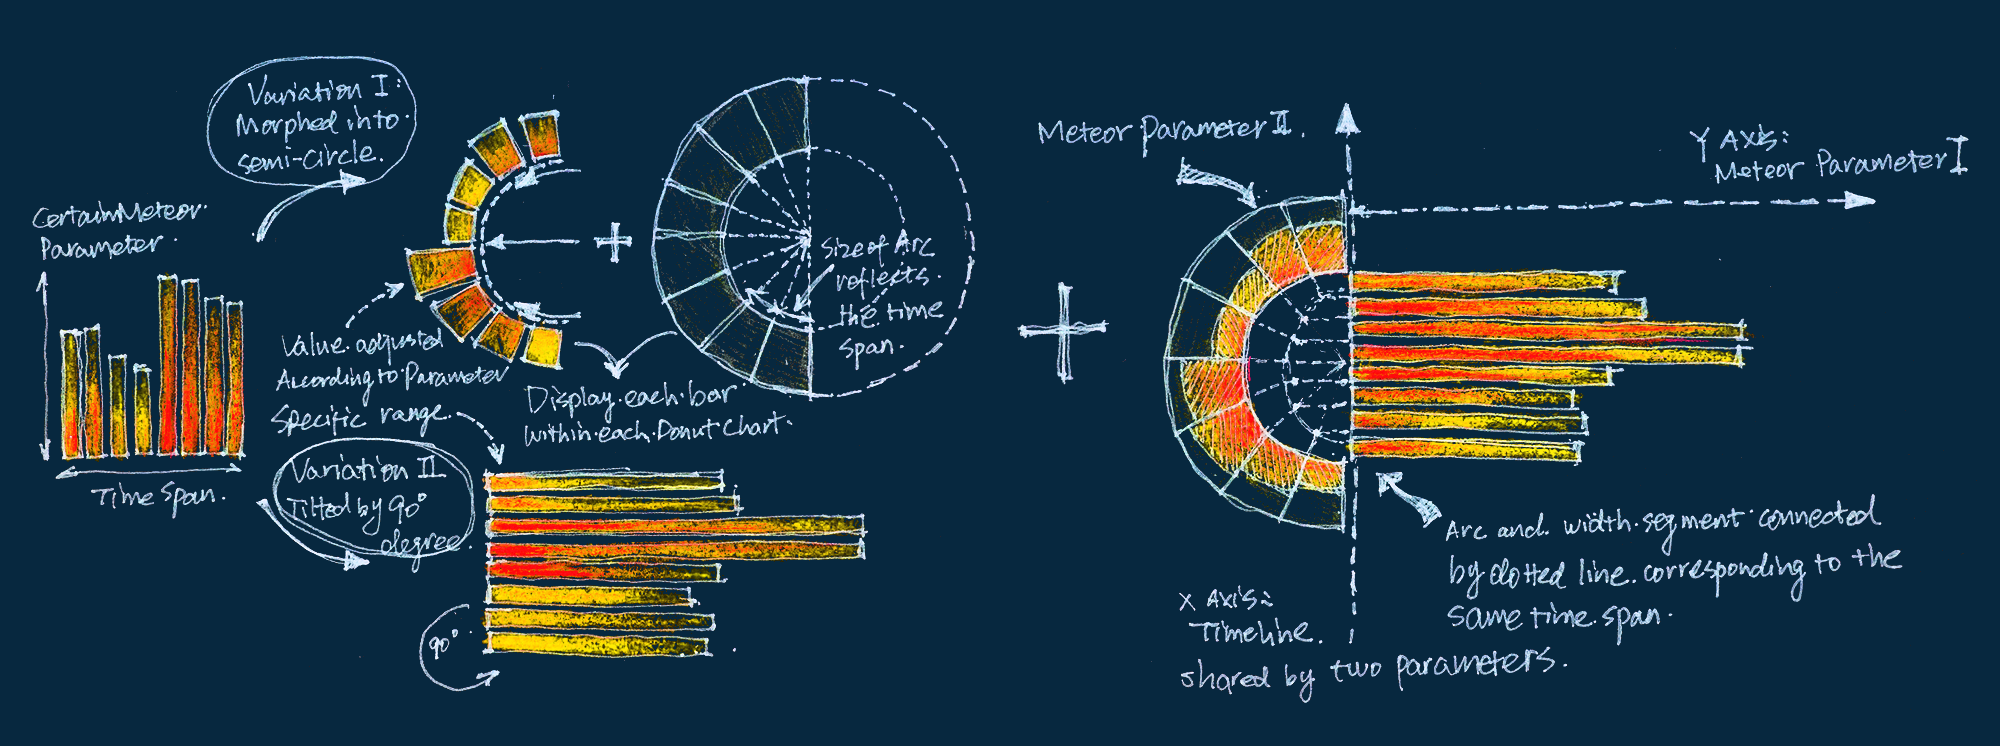 Variation I:
Morphed into
semi-circle.
Certain Meteor
Parameter
Time Span.
Value adjusted
According to Parameter
Specific range
Variation II
Tilted by 90°
degree.
90°
Display each bar
within each Donut Chart.
Size of Arc
reflects
the time
span.
Meteor Parameter II.
Y Axis:
Meteor Parameter I
Arc and width segment connected
by dotted line corresponding to the
same time span.
X Axis:
Timeline.
shared by two parameters.